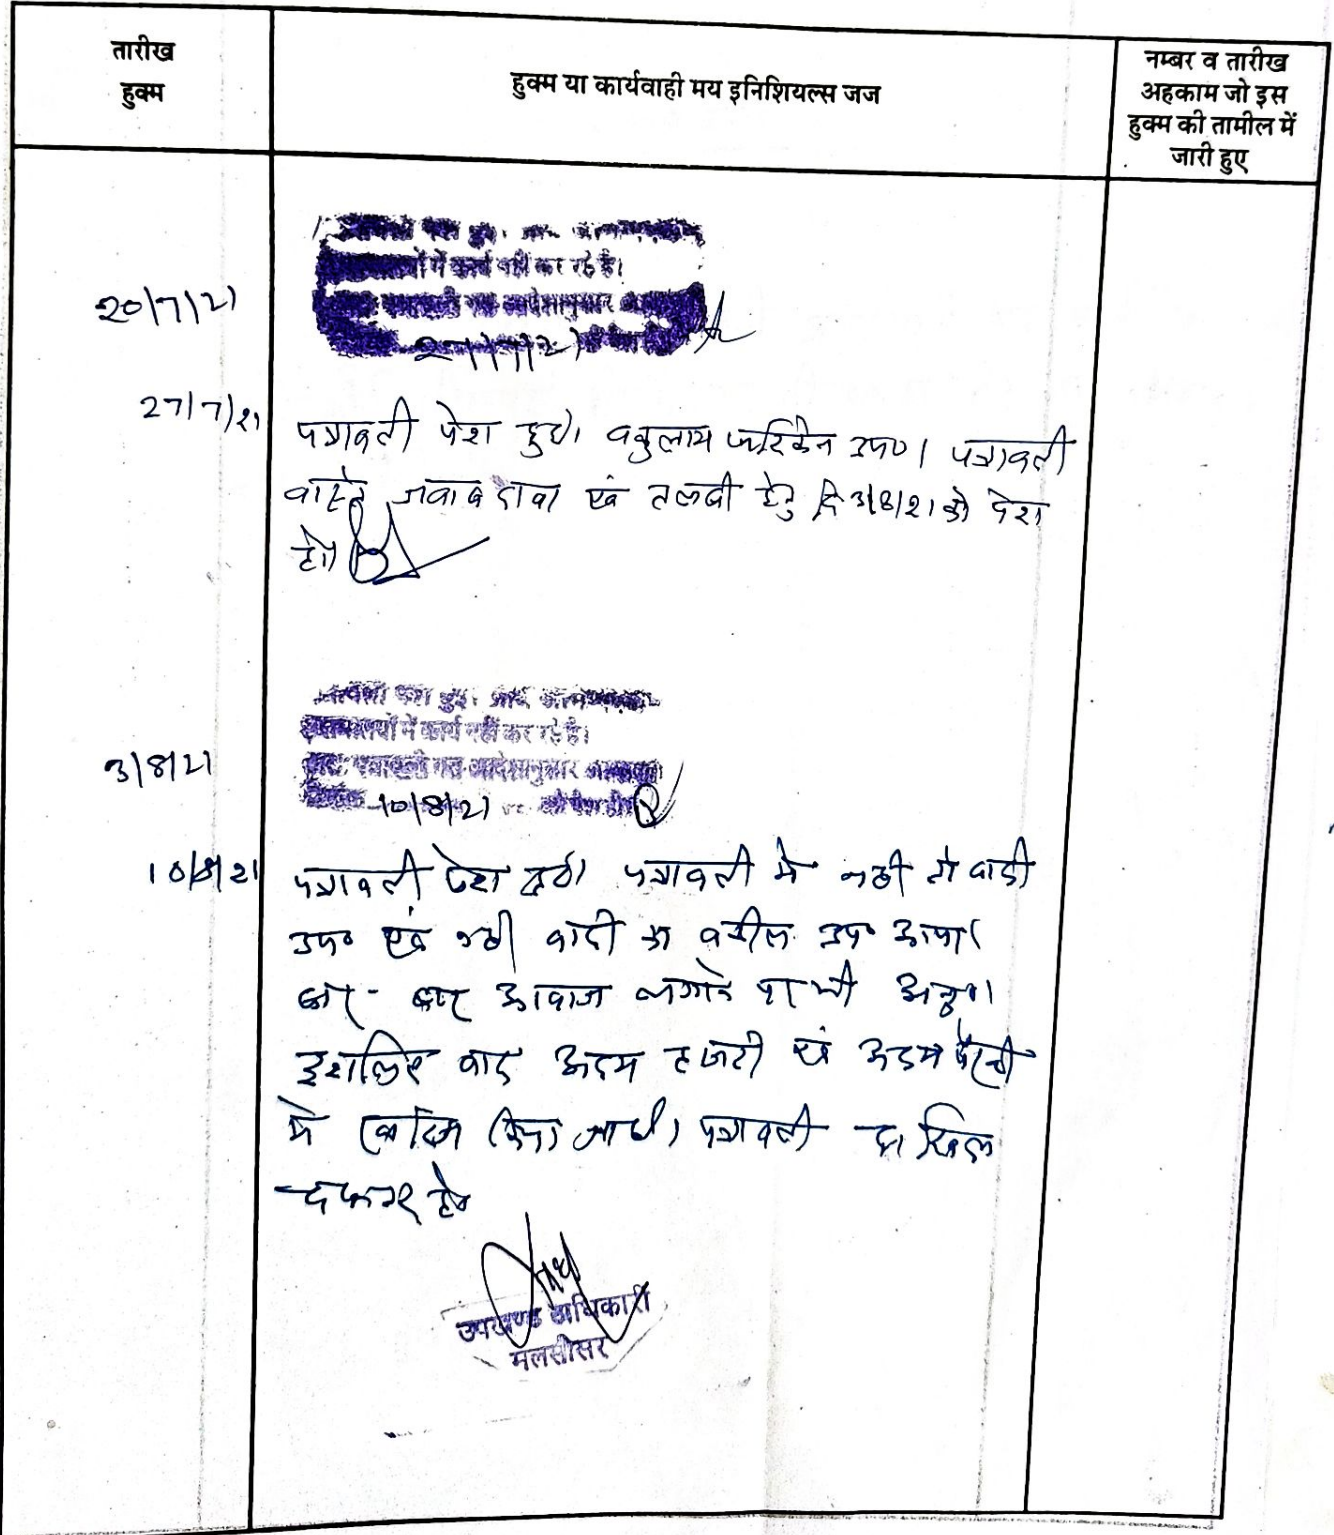 तारीख
हुक्म
हुक्म या कार्यवाही मय इनिशियल्स जज
नम्बर व तारीख
अहकाम जो इस
हुक्म की तामील में
जारी हुए
20/7/21
पेश हुई।
में कार्य नहीं कर रहे है।
पत्रावली गत आदेशानुसार
27/7/21
27/7/21
पत्रावली पेश हुई। वकुलाय फरिकेन उप०। पत्रावली
वास्ते जवाब दावा एवं तलबी हेतु दि 3/8/21 को पेश
हो।
3/8/21
पेश हुई।
में कार्य नहीं कर रहे है।
पत्रावली गत आदेशानुसार
10/8/21 को पेश हो
10/8/21
पत्रावली पेश हुई। पत्रावली मे नही तो वादी
उप० एवं नही वादी का वकील उप० आया।
बार - बार आवाज लगाने पर भी अनु०।
इसलिए वाद अदम हाजरी एवं अदम पैरवी
मे खारिज किया जाता है। पत्रावली दाखिल
दफ्तर हो।
उपखण्ड अधिकारी
मलसीसर